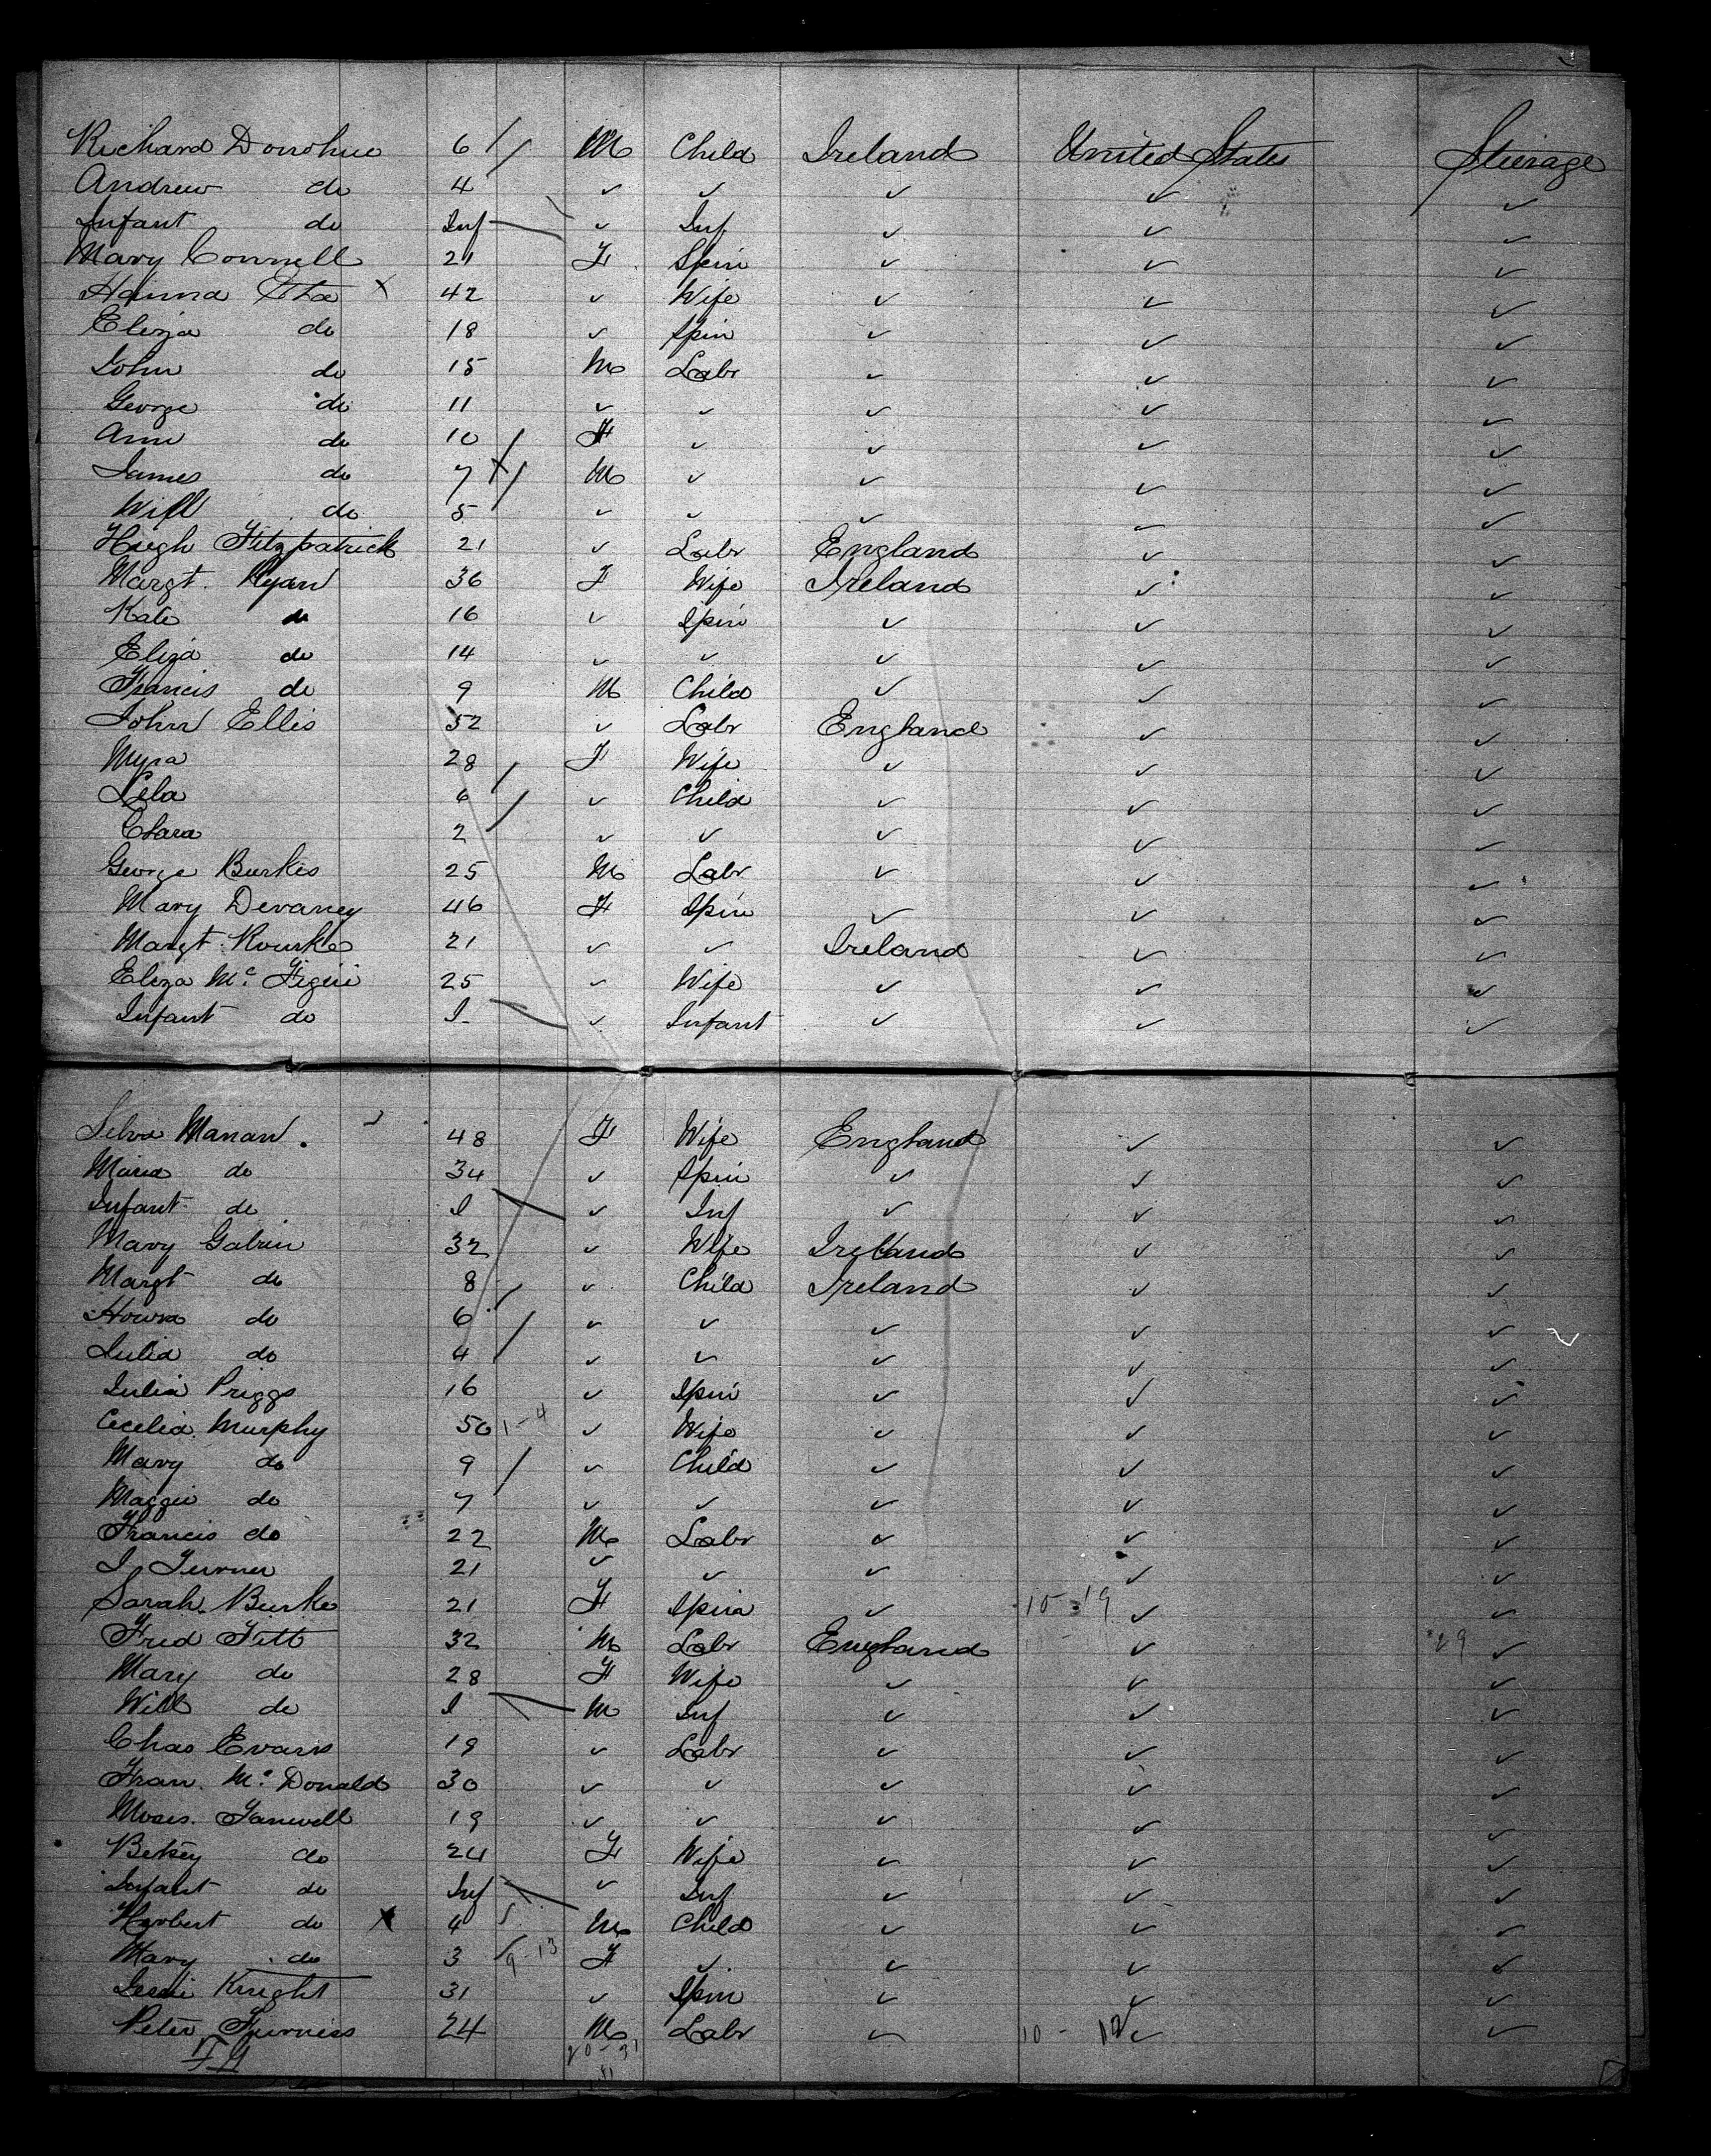 Richard Donohue 6 M Child Ireland United States Steerage
Andrew do 4 ✓ ✓ ✓ ✓ ✓
Infant do Inf ✓ Inf ✓ ✓ ✓
Mary Connell 21 F Spin ✓ ✓ ✓
Hanna x 42 ✓ Wife ✓ ✓ ✓
Eliza do 18 ✓ Spin ✓ ✓ ✓
John do 15 M Labr ✓ ✓ ✓
George do 11 ✓ ✓ ✓ ✓ ✓
Ann do 10 F ✓ ✓ ✓ ✓
James do 7 M ✓ ✓ ✓ ✓
Will do 5 ✓ ✓ ✓ ✓ ✓
Hugh Fitzpatrick 21 ✓ Labr England ✓ ✓
Margt. Ryan 36 F Wife Ireland ✓ ✓
Kate do 16 ✓ Spin ✓ ✓ ✓
Eliza do 14 ✓ ✓ ✓ ✓ ✓
Francis do 9 M Child ✓ ✓ ✓
John Ellis 32 ✓ Labr England ✓ ✓
Myra 28 F Wife ✓ ✓ ✓
Lela 6 ✓ Child ✓ ✓ ✓
Clara 2 ✓ ✓ ✓ ✓ ✓
George Burkis 25 M Labr ✓ ✓ ✓
Mary Devaney 46 F Spin ✓ ✓ ✓
Margt. Rourke 21 ✓ ✓ Ireland ✓ ✓
Eliza Mc 25 ✓ Wife ✓ ✓ ✓
Infant do I ✓ Infant ✓ ✓ ✓
Manan. 48 F Wife England ✓ ✓
Maria do 34 ✓ Spin ✓ ✓ ✓
Infant do I ✓ Inf ✓ ✓ ✓
Mary Galvin 32 ✓ Wife Ireland ✓ ✓
Margt do 8 ✓ Child Ireland ✓ ✓
do 6 ✓ ✓ ✓ ✓ ✓
Julia do 4 ✓ ✓ ✓ ✓ ✓
Julia Priggs 16 ✓ Spin ✓ ✓ ✓
Cecelia Murphy 50 1-4 ✓ Wife ✓ ✓ ✓
Mary do 9 ✓ Child ✓ ✓ ✓
Maggie do 7 ✓ ✓ ✓ ✓ ✓
Francis do 22 M Labr ✓ ✓ ✓
J. Turner 21 ✓ ✓ ✓ ✓ ✓
Sarah Burke 21 F Spin ✓ 10-19 ✓ ✓
Fred Titt 32 M Labr England ✓ 29 ✓
Mary do 28 F Wife ✓ ✓ ✓
Will do I M Inf ✓ ✓ ✓
Chas Evans 19 ✓ Labr ✓ ✓ ✓
Fran. Mc Donald 30 ✓ ✓ ✓ ✓ ✓
Moses 19 ✓ ✓ ✓ ✓ ✓
Betsey do 24 F Wife ✓ ✓ ✓
Infant do Inf ✓ Inf ✓ ✓ ✓
Herbert do x 4 M Child ✓ ✓ ✓
Mary do 3 9-13 F ✓ ✓ ✓ ✓
Knight 31 ✓ Spin ✓ ✓ ✓
Peter Furniss 24 M Labr ✓ 10 - 12 ✓ ✓
20-31